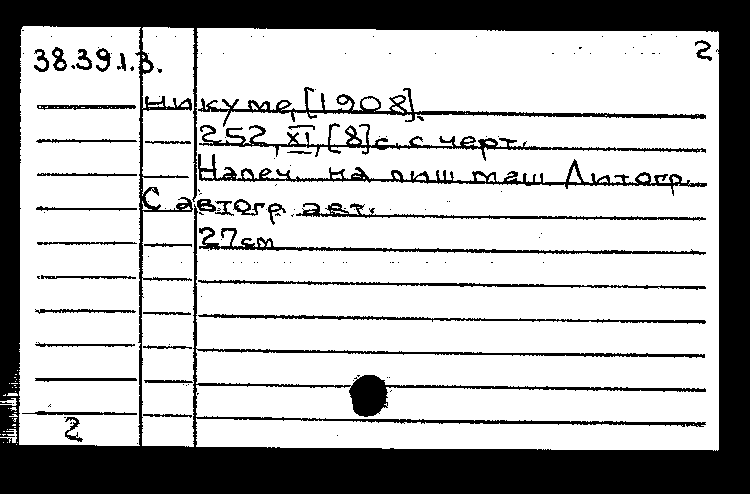 38.39.1.3.
2
нику me, [1908].
252, XI, [8] с. с черт.
Напеч. на пиш. маш. Литогр.
С автогр. авт.
27 см
2